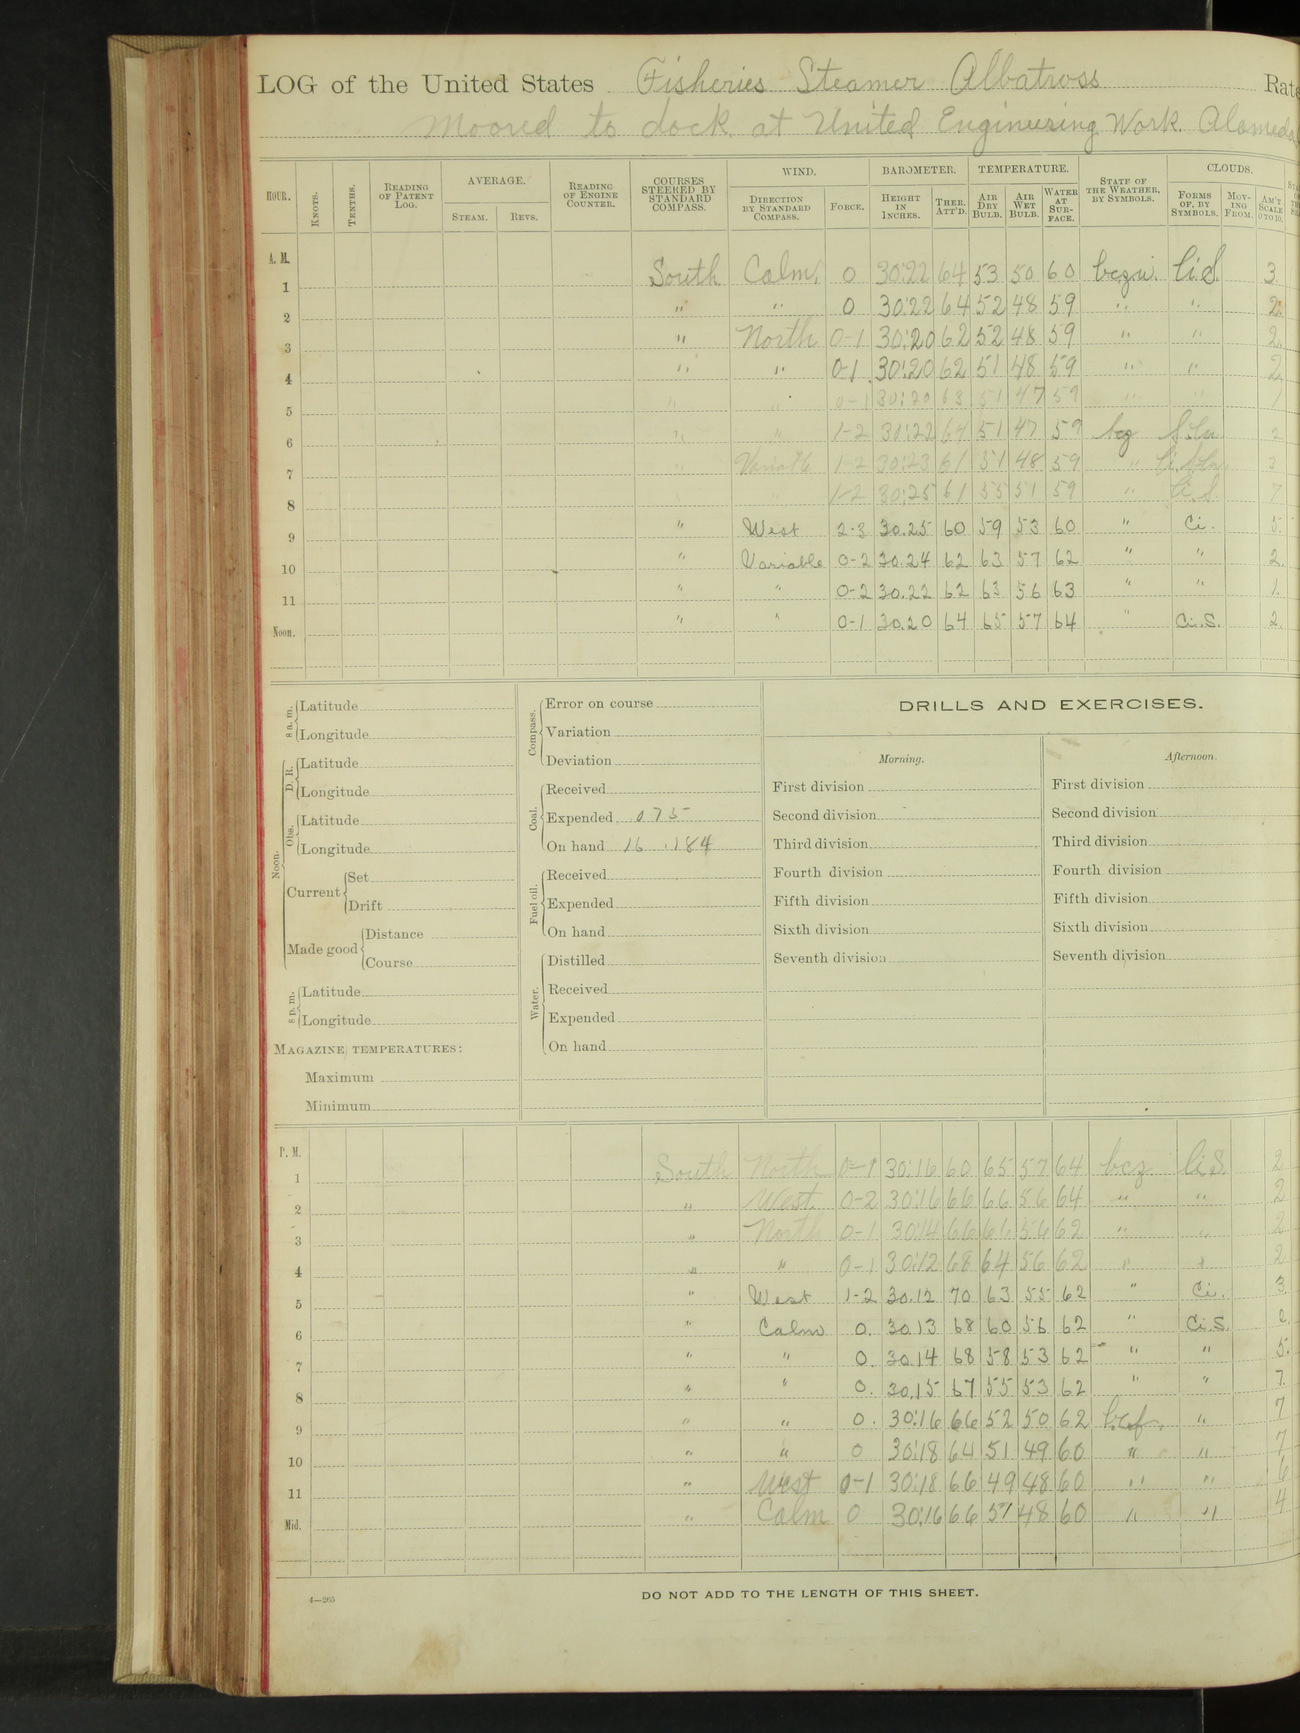 LOG of the United States Fisheries Steamer Albatross Rate
Moored to dock at United Engineering Work. Alameda
HOUR. KNOTS. TENTHS. READING OF PATENT LOG. AVERAGE. STEAM. REVS. READING OF ENGINE COUNTER. COURSES STEERED BY STANDARD COMPASS. WIND. DIRECTION BY STANDARD COMPASS. FORCE. BAROMETER. HEIGHT IN INCHES. THER. ATT'D. TEMPERATURE. AIR DRY BULB. AIR WET BULB. WATER AT SURFACE. STATE OF THE WEATHER, BY SYMBOLS. CLOUDS. FORMS OF, BY SYMBOLS. MOVING FROM. AM'T SCALE 0 TO 10.
A. M.
1 South Calm. 0 30.22 64 53 50 60 Ci.S. 3
2 " " 0 30.22 64 52 48 59 " " 2
3 " North 0-1 30.20 62 52 48 59 " " 2
4 " " 0-1 30.20 62 51 48 59 " " 2
5 " " 0-1 30.20 63 51 47 59 " " 1
6 " " 1-2 30.22 64 51 47 59 bcz 2
7 " Variable 1-2 30.23 61 51 48 59 "
8 1-2 30.25 61 55 51 59 " Ci.S. 7
9 " West 2-3 30.25 60 59 53 60 " Ci. 5
10 " Variable 0-2 30.24 62 63 57 62 " " 2
11 " " 0-2 30.22 62 63 56 63 " " 1
Noon. " " 0-1 30.20 64 65 57 64 " Ci.S. 2
8 a. m. Latitude
Longitude
Noon. D. R. Latitude
Longitude
Obs. Latitude
Longitude
Current Set
Drift
Made good Distance
Course
8 p. m. Latitude
Longitude
MAGAZINE TEMPERATURES:
Maximum
Minimum
Compass. Error on course
Variation
Deviation
Coal. Received
Expended 075
On hand 16 .184
Fuel oil. Received
Expended
On hand
Water. Distilled
Received
Expended
On hand
DRILLS AND EXERCISES.
Morning.
First division
Second division
Third division
Fourth division
Fifth division
Sixth division
Seventh division
Afternoon.
First division
Second division
Third division
Fourth division
Fifth division
Sixth division
Seventh division
P. M.
1 South North 0-1 30.16 60 65 57 64 bcz Ci.S. 2
2 " West 0-2 30.16 66 66 56 64 " " 2
3 " North 0-1 30.14 66 66 56 62 " " 2
4 " " 0-1 30.12 68 64 56 62 " " 2
5 " West 1-2 30.12 70 63 55 62 " Ci. 3
6 " Calm 0. 30.13 68 60 56 62 " Ci.S. 2
7 " " 0. 30.14 68 58 53 62 " " 5
8 " " 0. 30.15 67 55 53 62 " " 7
9 " " 0. 30.16 66 52 50 62 " 7
10 " " 0 30.18 64 51 49 60 " " 7
11 " West 0-1 30.18 66 49 48 60 " " 6
Mid. " Calm 0 30.16 66 57 48 60 " " 4
4—265
DO NOT ADD TO THE LENGTH OF THIS SHEET.